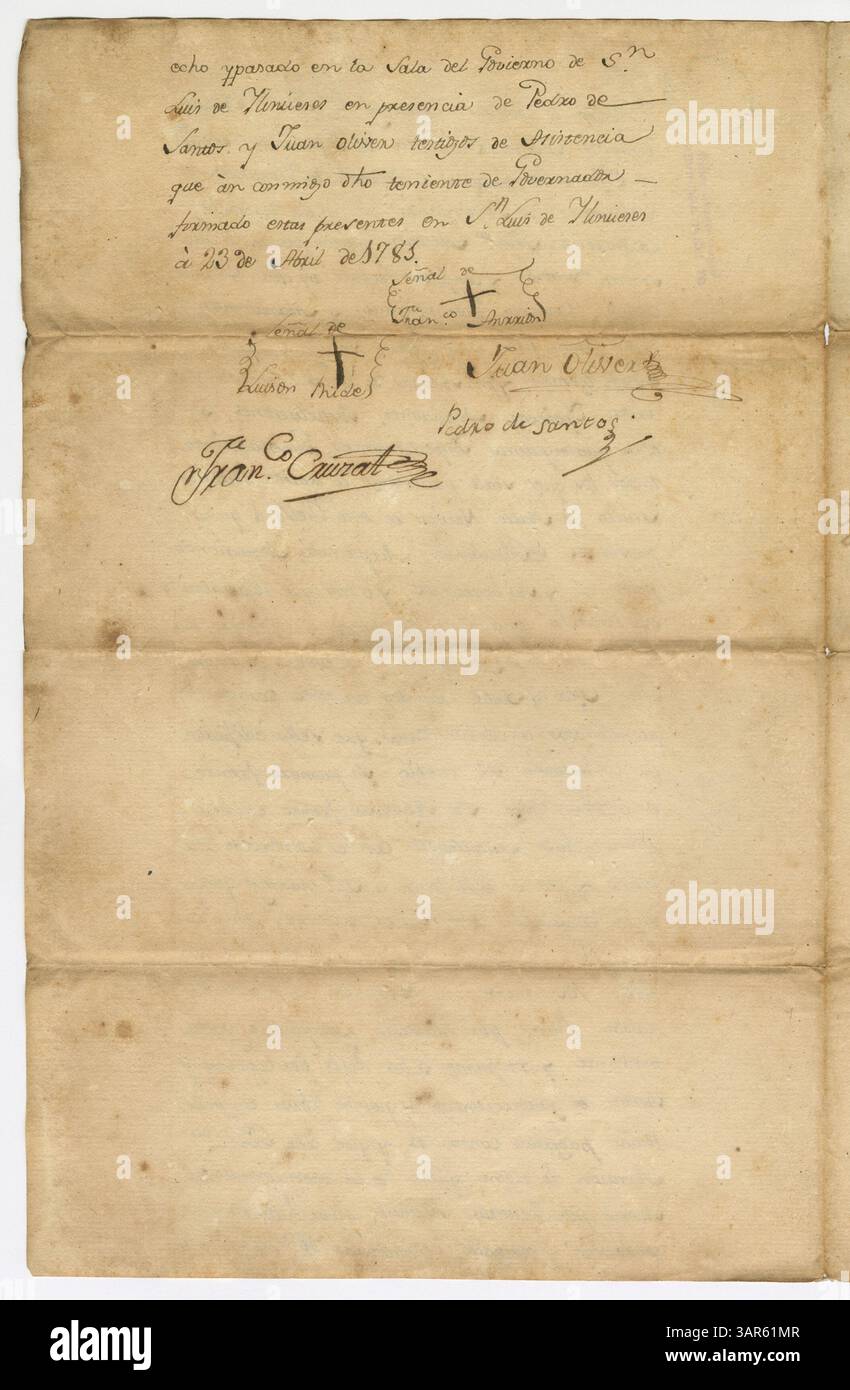 echo ypasado en la Sala del Govierno de Sn
Luis de Ylinueses en presencia de Pedro de
Santos y Juan Oliver testigos de Asistencia
que àn conmigo dho teniente de Governador
firmado estas presentes en Sn Luis de Ylinueses
à 23 de Abril de 1781.
Señal de
Franco
Señal de
Luison
Juan Oliver
Pedro de santos
Franco Cruzat
alamy
alamy
alamy
a
Image ID: 3AR61MR
www.alamy.com